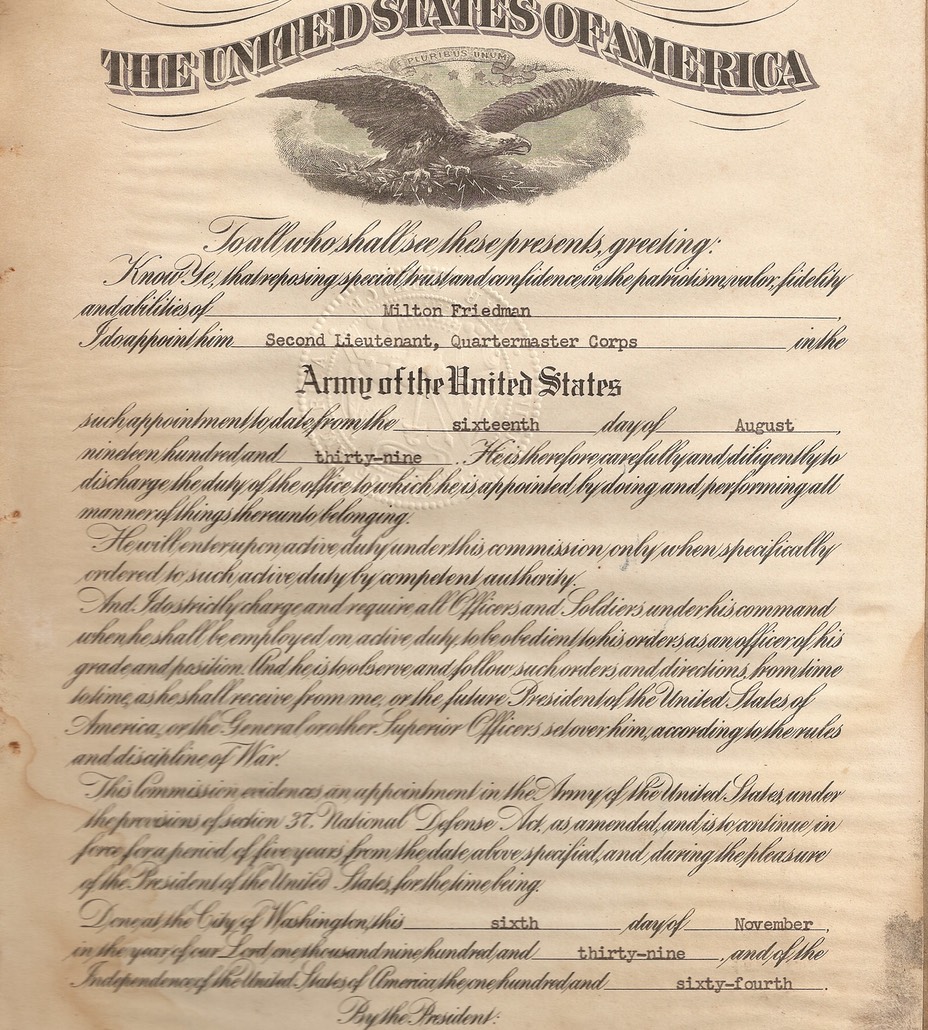 THE UNITED STATES OF AMERICA
PLURIBUS UNUM
To all who shall see these presents, greeting:
Know Ye, that reposing special trust and confidence in the patriotism, valor, fidelity
and abilities of Milton Friedman,
I do appoint him Second Lieutenant, Quartermaster Corps in the
Army of the United States
such appointment to date from the sixteenth day of August,
nineteen hundred and thirty-nine. He is therefore carefully and diligently to
discharge the duty of the office to which he is appointed by doing and performing all
manner of things thereunto belonging.
He will enter upon active duty under this commission only when specifically
ordered to such active duty by competent authority.
And I do strictly charge and require all Officers and Soldiers under his command
when he shall be employed on active duty, to be obedient to his orders as an officer of his
grade and position. And he is to observe and follow such orders and directions, from time
to time, as he shall receive from me, or the future President of the United States of
America, or the General or other Superior Officers set over him, according to the rules
and discipline of War.
This Commission evidences an appointment in the Army of the United States, under
the provisions of section 37, National Defense Act, as amended, and is to continue in
force for a period of five years from the date above specified, and during the pleasure
of the President of the United States, for the time being.
Done at the City of Washington, this sixth day of November,
in the year of our Lord one thousand nine hundred and thirty-nine, and of the
Independence of the United States of America the one hundred and sixty-fourth.
By the President: